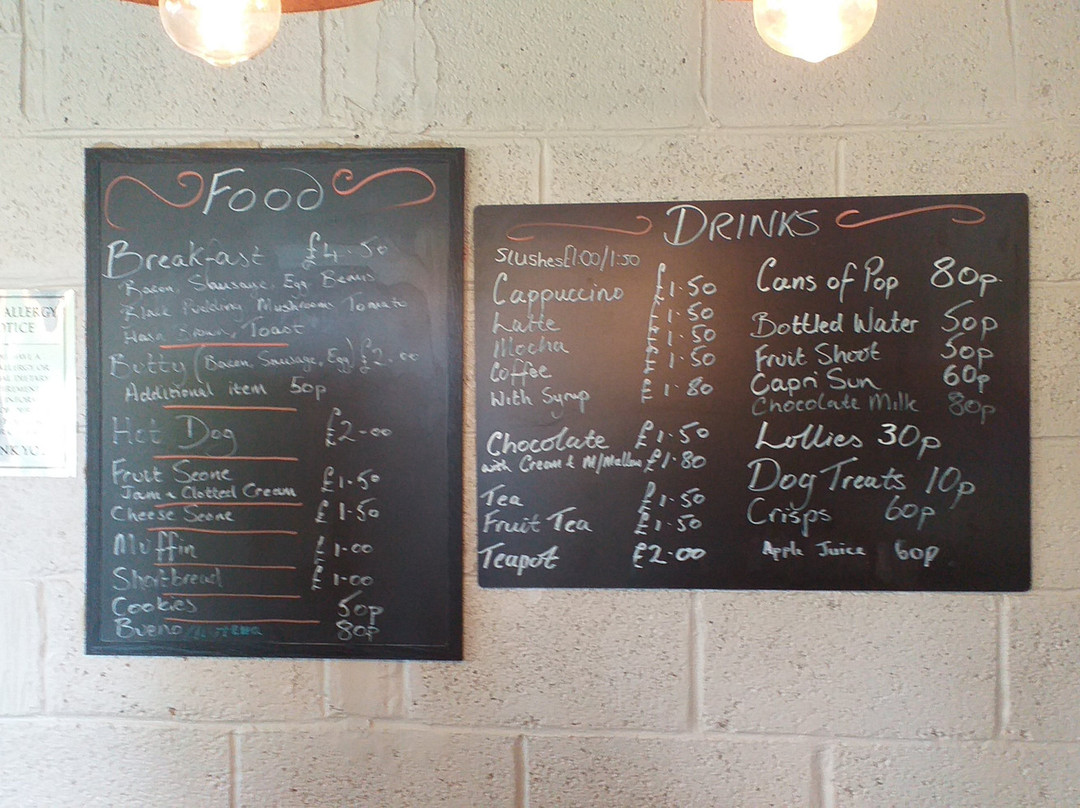 ALLERGY
Food
Breakfast £4.50
Bacon, Sausage, Egg, Beans
Black Pudding, Mushrooms, Tomato
Hash Brown, Toast
Butty (Bacon, Sausage, Egg) £2.00
Additional item 50p
Hot Dog £2-00
Fruit Scone £1.50
Jam & Clotted Cream
Cheese Scone £1.50
Muffin £1-00
Shortbread £1-00
Cookies 50p
Bueno 80p
DRINKS
Slushes £1.00/1:50
Cappuccino £1.50
Latte £1.50
Mocha £1.50
Coffee £1.50
With Syrup £1.80
Chocolate £1.50
with Cream & M/Mallow £1.80
Tea £1.50
Fruit Tea £1.50
Teapot £2.00
Cans of Pop 80p.
Bottled Water 50p
Fruit Shoot 50p
Capri Sun 60p
Chocolate Milk 80p
Lollies 30p
Dog Treats 10p
Crisps 60p
Apple Juice 60p